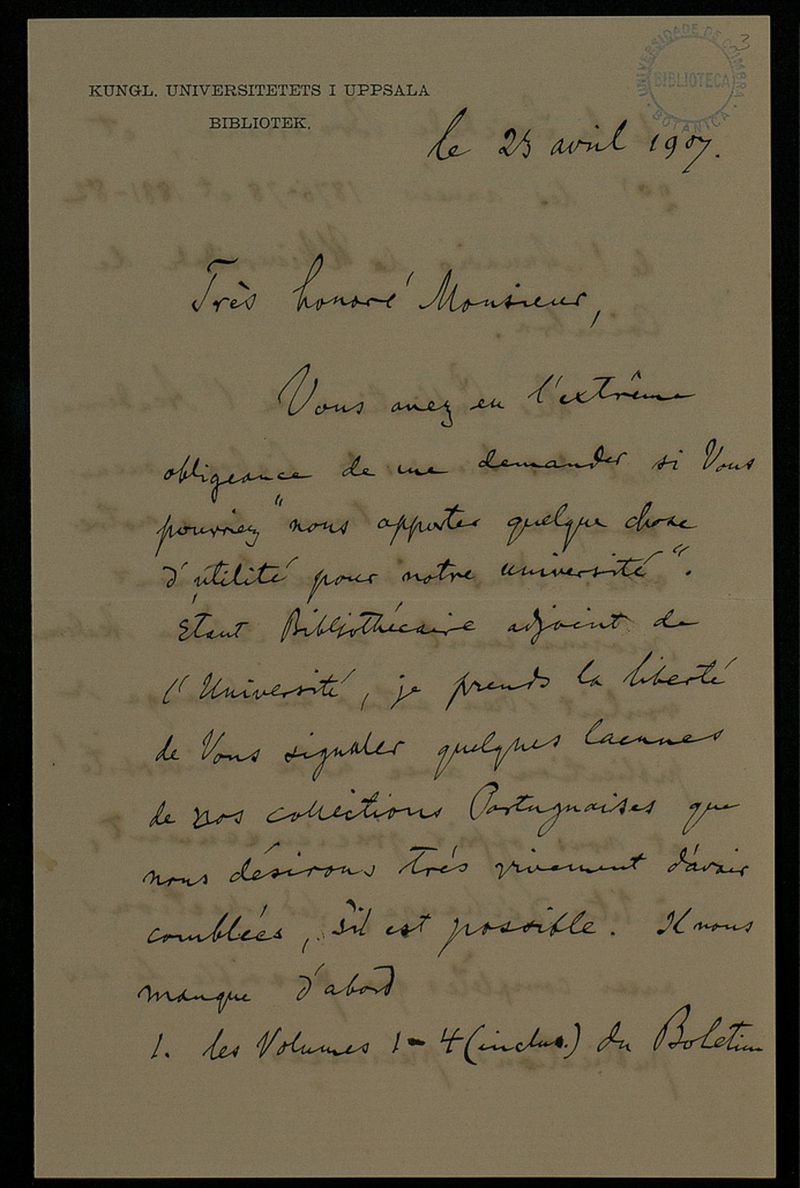 UNIVERSIDADE DE COIMBRA
BIBLIOTECA
BOTANICA
3
KUNGL. UNIVERSITETETS I UPPSALA
BIBLIOTEK.
le 23 avril 1907.
Très honoré Monsieur,
Vous avez eu l'extrême
obligeance de me demander si Vous
pourriez "nous apporter quelque chose
d'utilité pour notre université".
Étant Bibliothécaire adjoint de
l'Université, je prends la liberté
de Vous signaler quelques lacunes
de nos collections Portugaises que
nous désirons très vivement d'avoir
comblées, s'il est possible. Il nous
manque d'abord
1. les Volumes 1-4 (inclus.) du Boletim